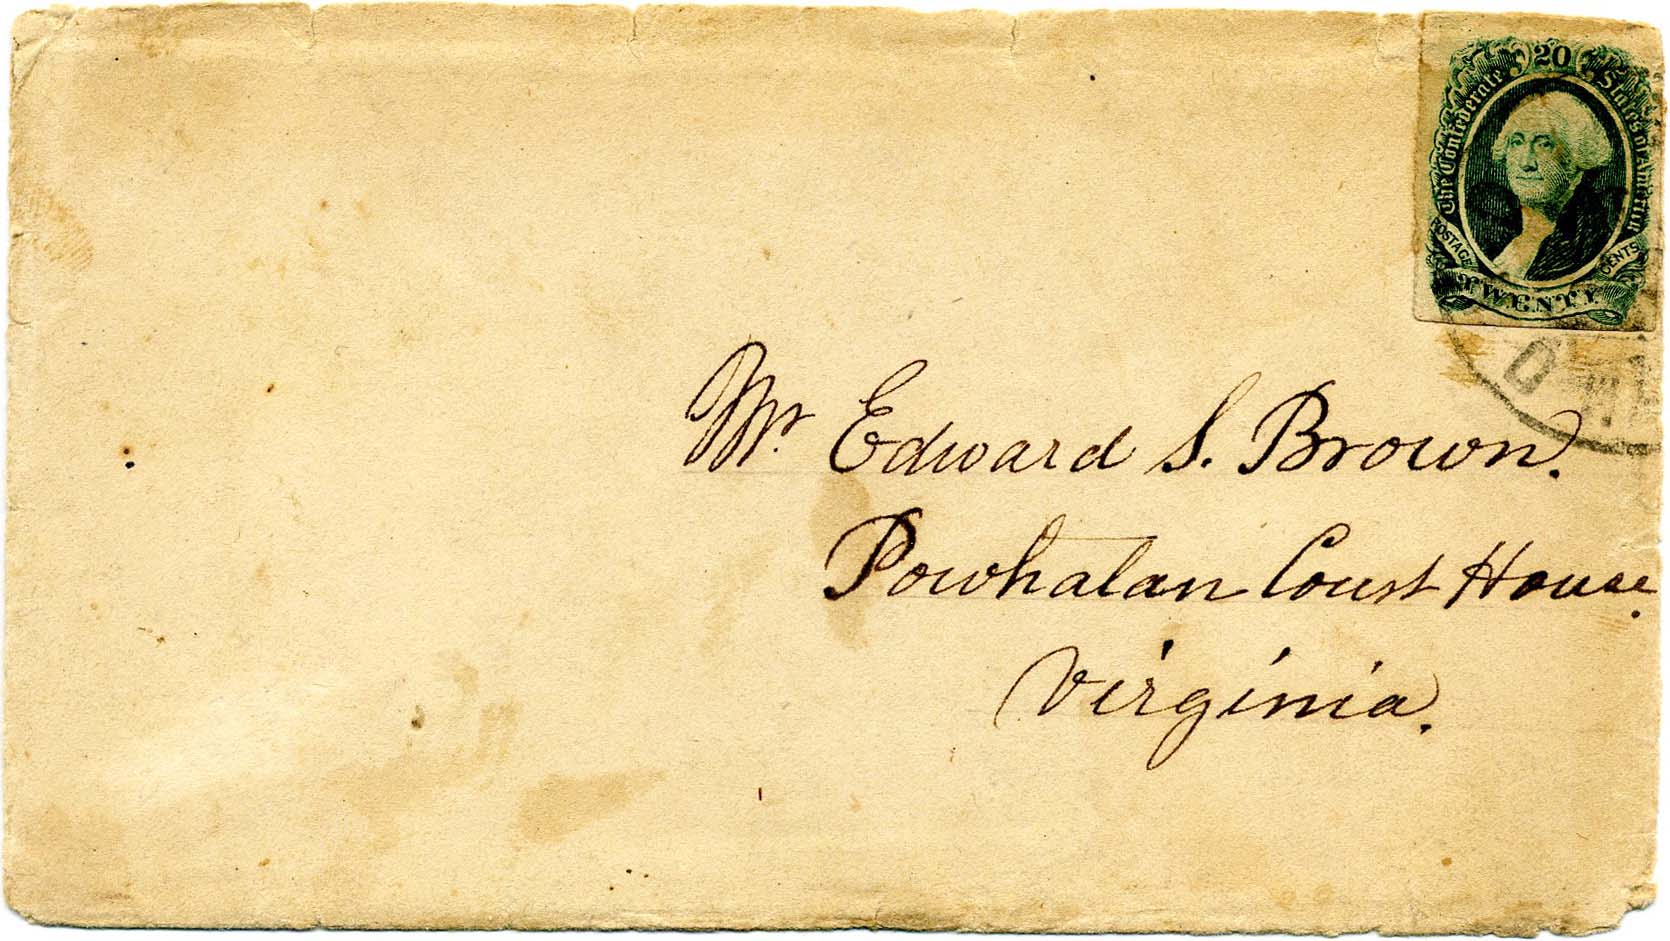 20
The Confederate States of America
POSTAGE
CENTS
TWENTY
Mr. Edward S. Brown.
Powhatan Court House.
Virginia.